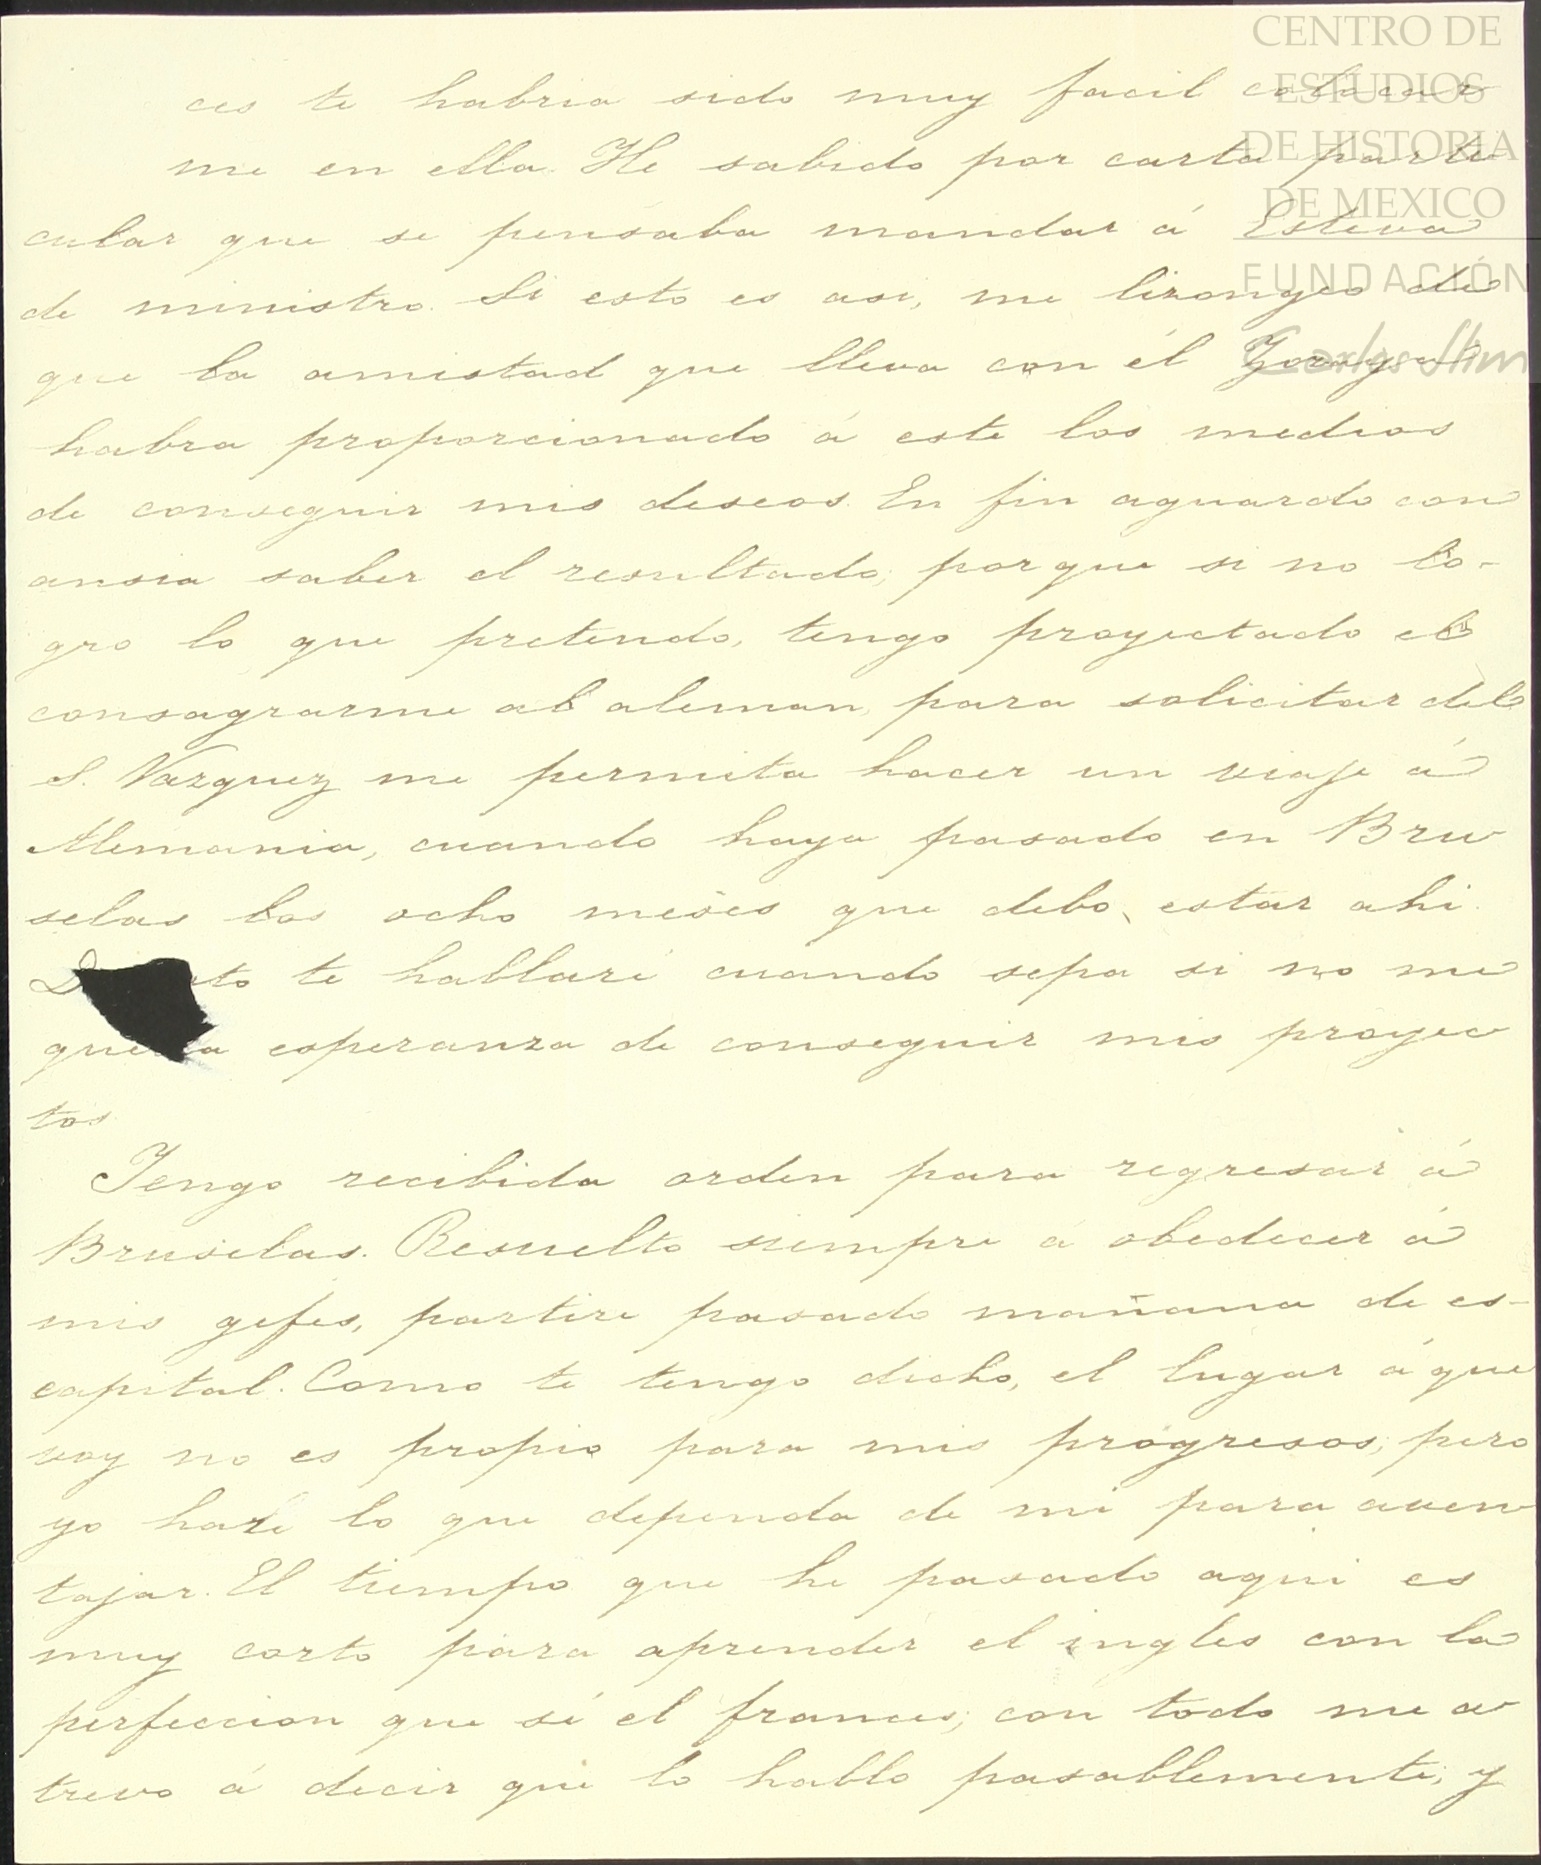 CENTRO DE
ESTUDIOS
DE HISTORIA
DE MEXICO
FUNDACIÓN
Carlos Slim
ces te habria sido muy facil colocar
me en ella. He sabido por carta parti
cular que se pensaba mandar á Esteva
de ministro. Si esto es asi, me lizongeo de
que la amistad que lleva con él
habra proporcionado á este los medios
de conseguir mis deseos. En fin aguardo con
ansia saber el resultado; porque si no lo-
gro lo que pretendo, tengo proyectado el
consagrarme al aleman, para solicitar del
S. Vazquez me permita hacer un viaje á
Alemania, cuando haya pasado en Bru
selas los ocho meses que debo estar ahi.
te hablaré cuando sepa si no me
esperanza de conseguir mis proyec
tos.
Tengo recibida orden para regresar á
Bruselas. Resuelto siempre á obedecer á
mis gefes, partire pasado mañana de es-
capital. Como te tengo dicho, el lugar á que
voy no es propio para mis progresos; pero
yo haré lo que dependa de mi para aven
tajar. El tiempo que he pasado aqui es
muy corto para aprender el ingles con la
perfeccion que sé el frances; con todo me a
trevo á decir que lo hablo pasablemente; y